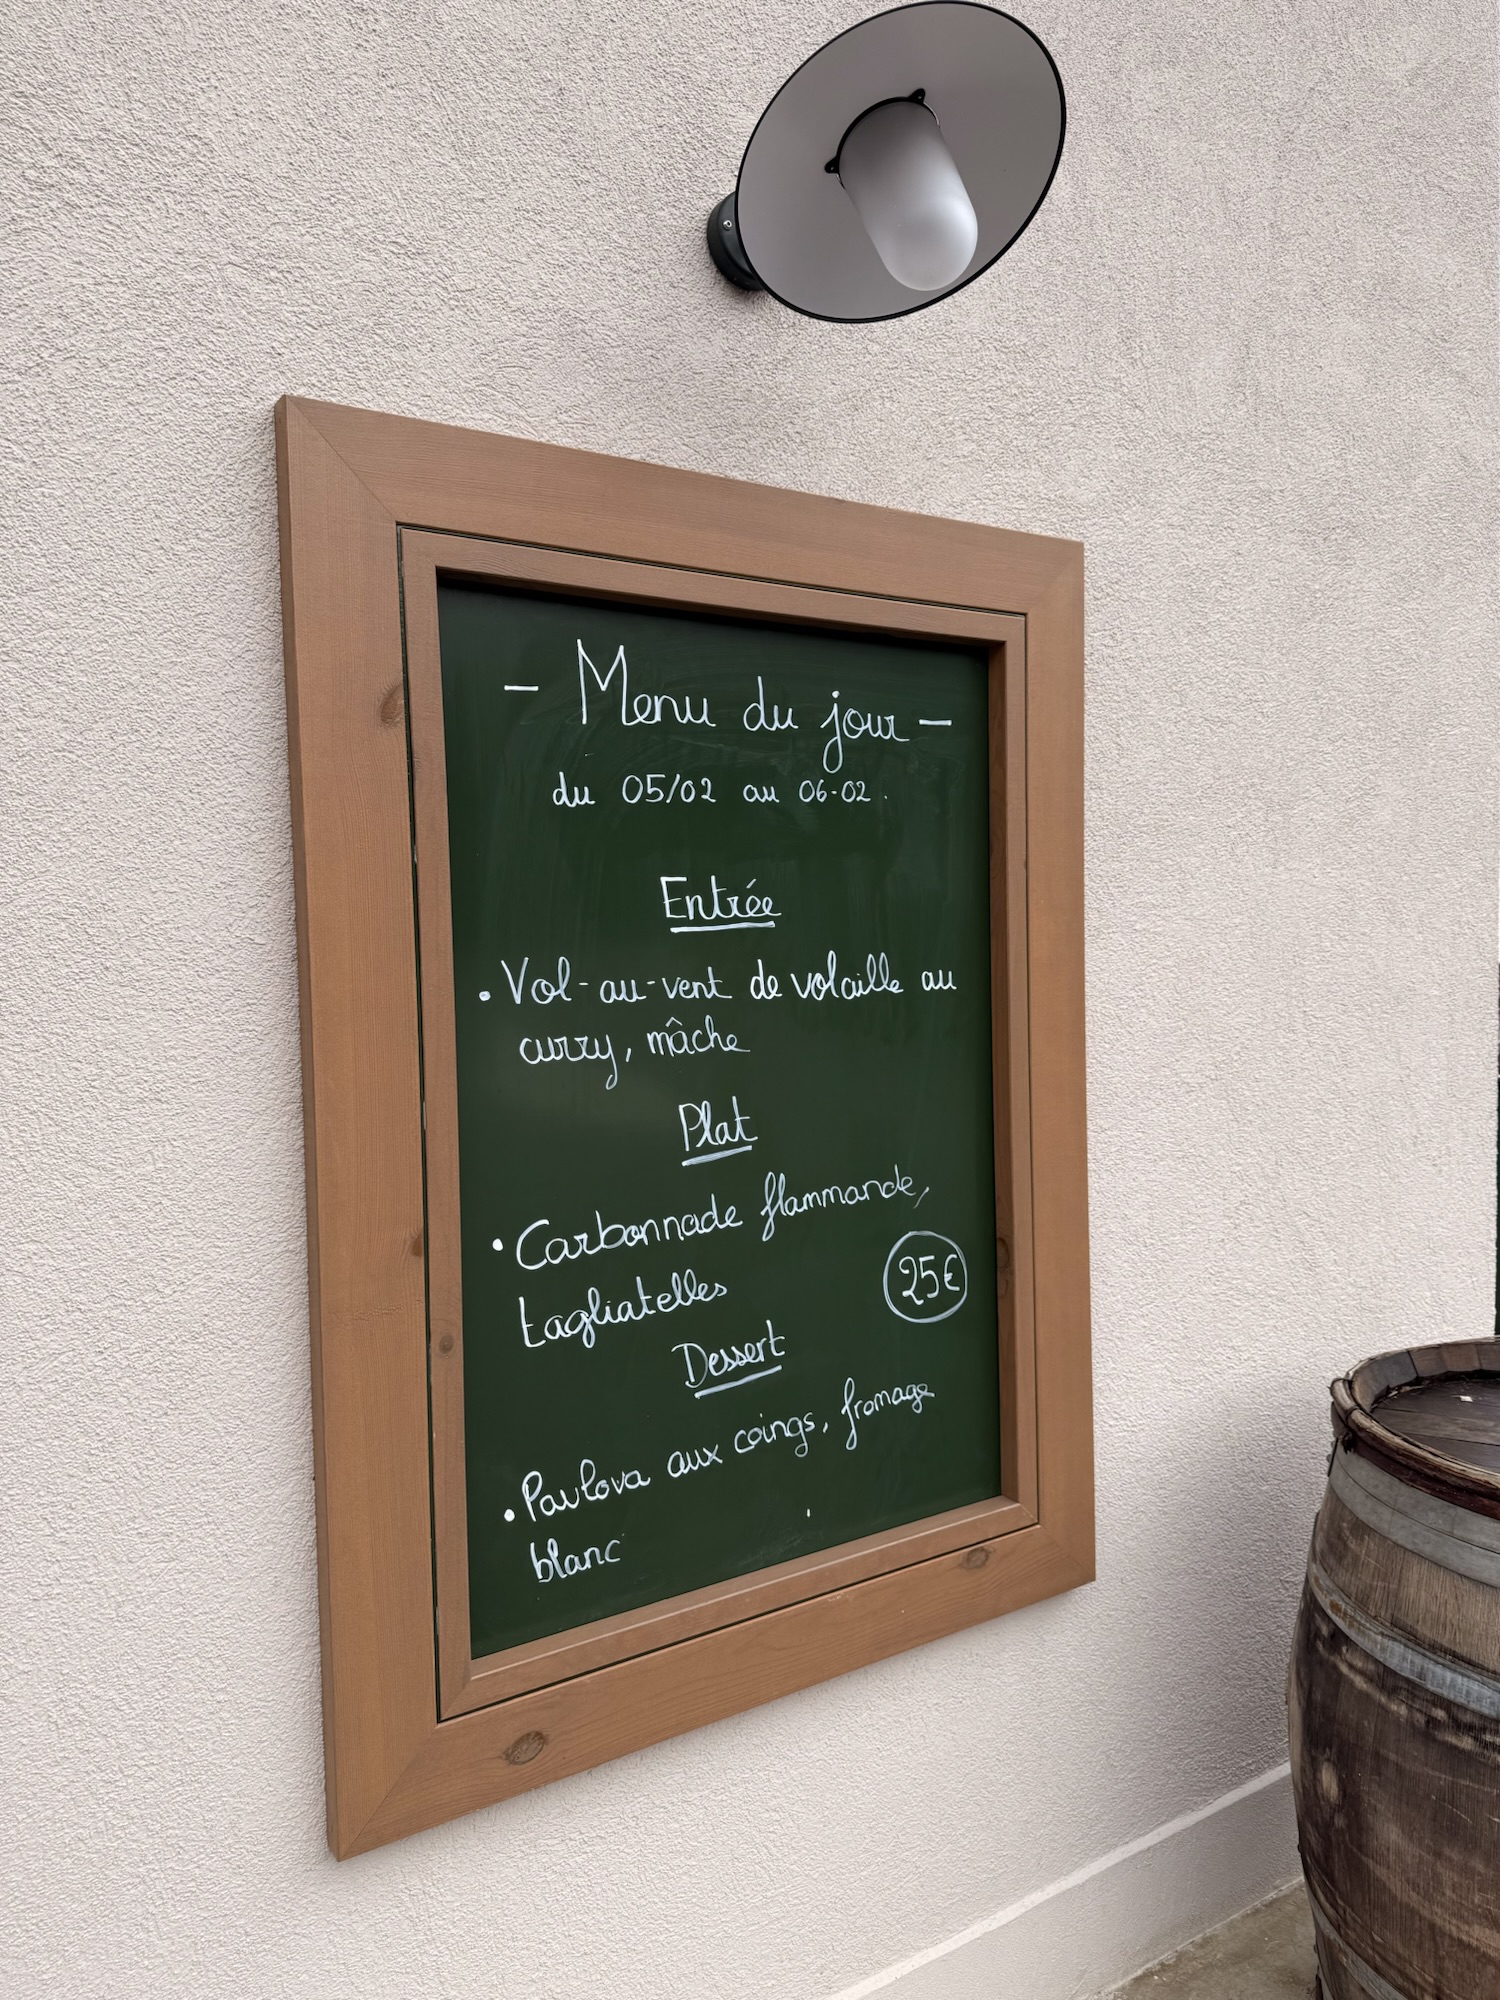 - Menu du jour -
du 05/02 au 06-02.
Entrée
• Vol-au-vent de volaille au
curry, mâche
Plat
• Carbonnade flammande,
tagliatelles
25€
Dessert
• Pavlova aux coings, fromage
blanc